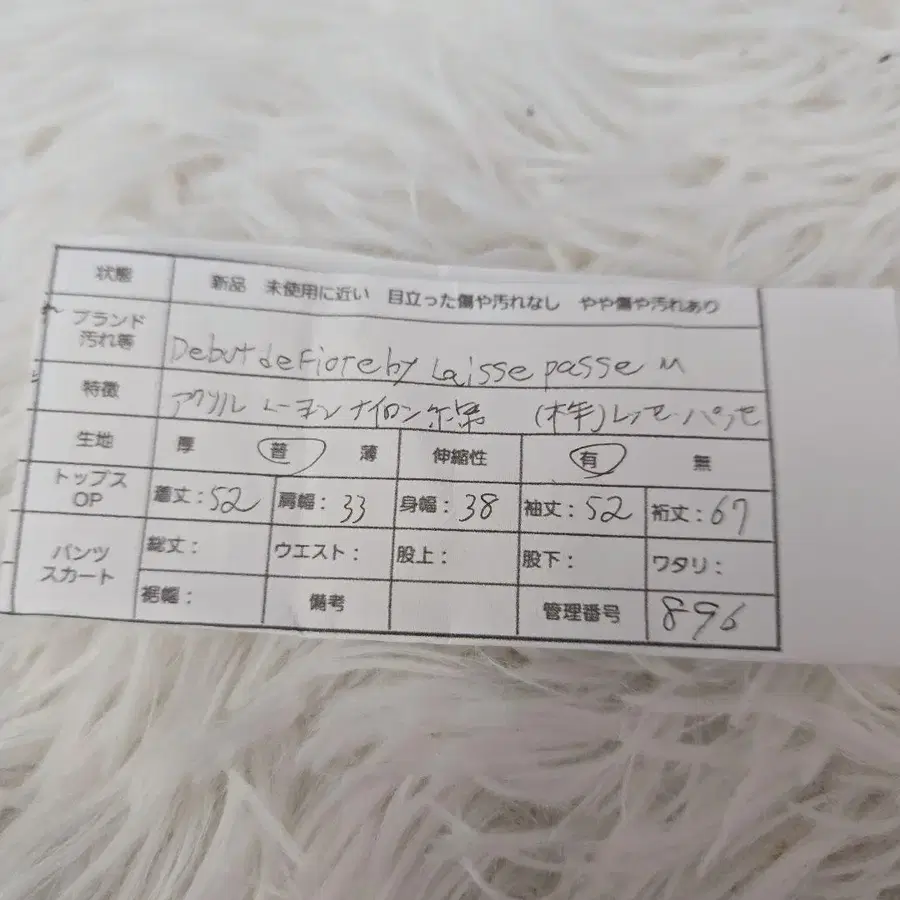 状態 新品 未使用に近い 目立った傷や汚れなし やや傷や汚れあり
ブランド
汚れ等 Debut de Fiore by Laisse passe M
特徴 アクリル レーヨン ナイロン (株)レッセ・パッセ
生地 厚 普 薄 伸縮性 有 無
トップス
OP 着丈:52 肩幅:33 身幅:38 袖丈:52 裄丈:67
パンツ
スカート 総丈: ウエスト: 股上: 股下: ワタリ:
裾幅: 備考 管理番号 896